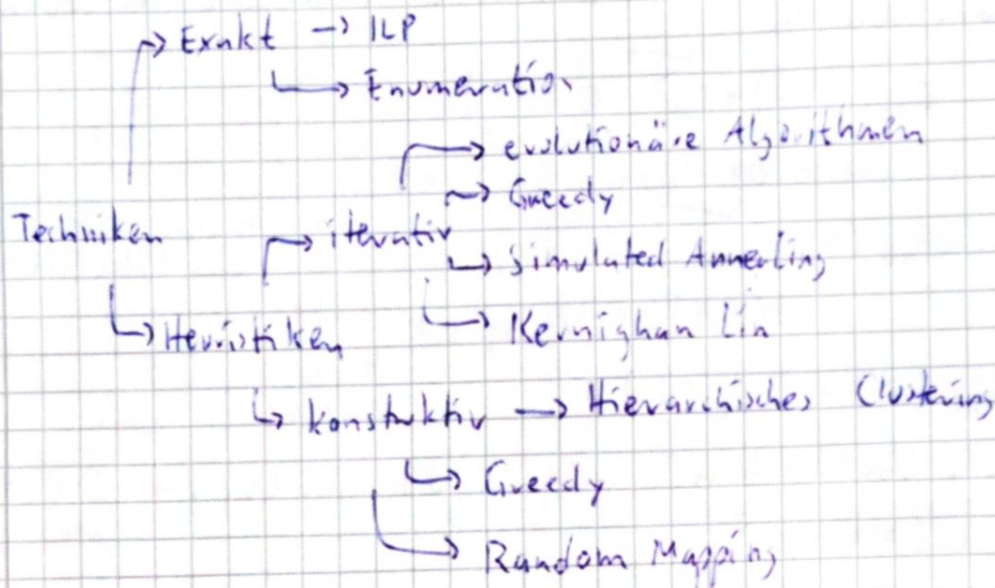 → Exakt → ILP
→ Enumeration
→ evolutionäre Algorithmen
→ Greedy
Techniken → iterativ
→ Simulated Annealing
→ Kernighan Lin
→ Heuristiken
→ konstruktiv → Hierarchisches Clustering
→ Greedy
→ Random Mapping